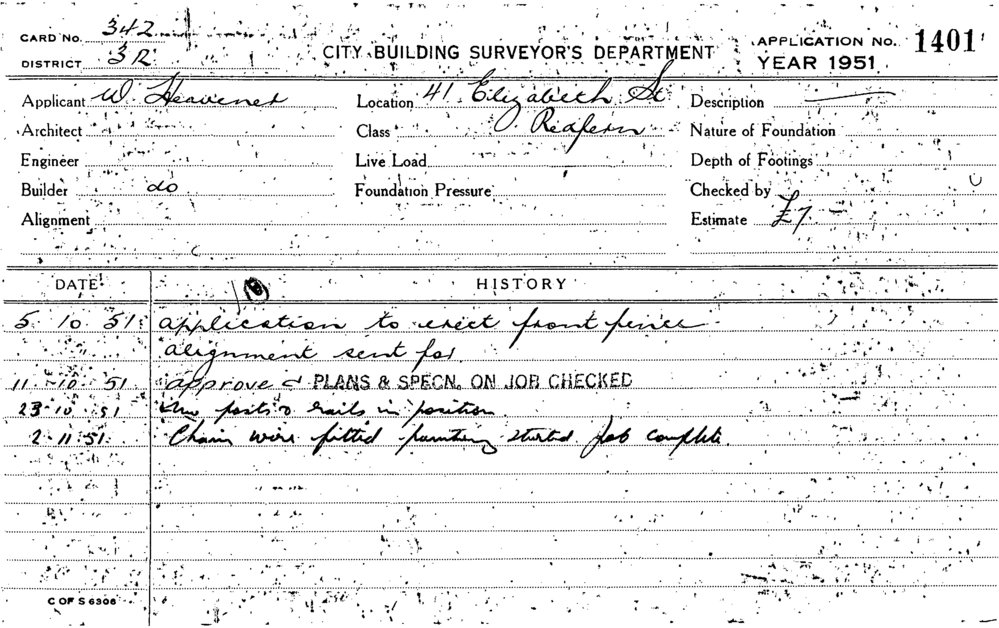 CARD No. 342
DISTRICT 3R
CITY BUILDING SURVEYOR'S DEPARTMENT
APPLICATION No. 1401
YEAR 1951
Applicant W. Heavener
Location 41 Elizabeth St
Description
Architect
Class Redfern
Nature of Foundation
Engineer
Live Load
Depth of Footings
Builder do
Foundation Pressure
Checked by
Alignment
Estimate £7
DATE
HISTORY
5 10 51 application to erect front fence
alignment sent for
11 - 10 - 51 approved PLANS & SPECN. ON JOB CHECKED
23-10-51 posts & rails in position
2-11-51 Chain wire fitted painting started Job complete
C OF S 6306